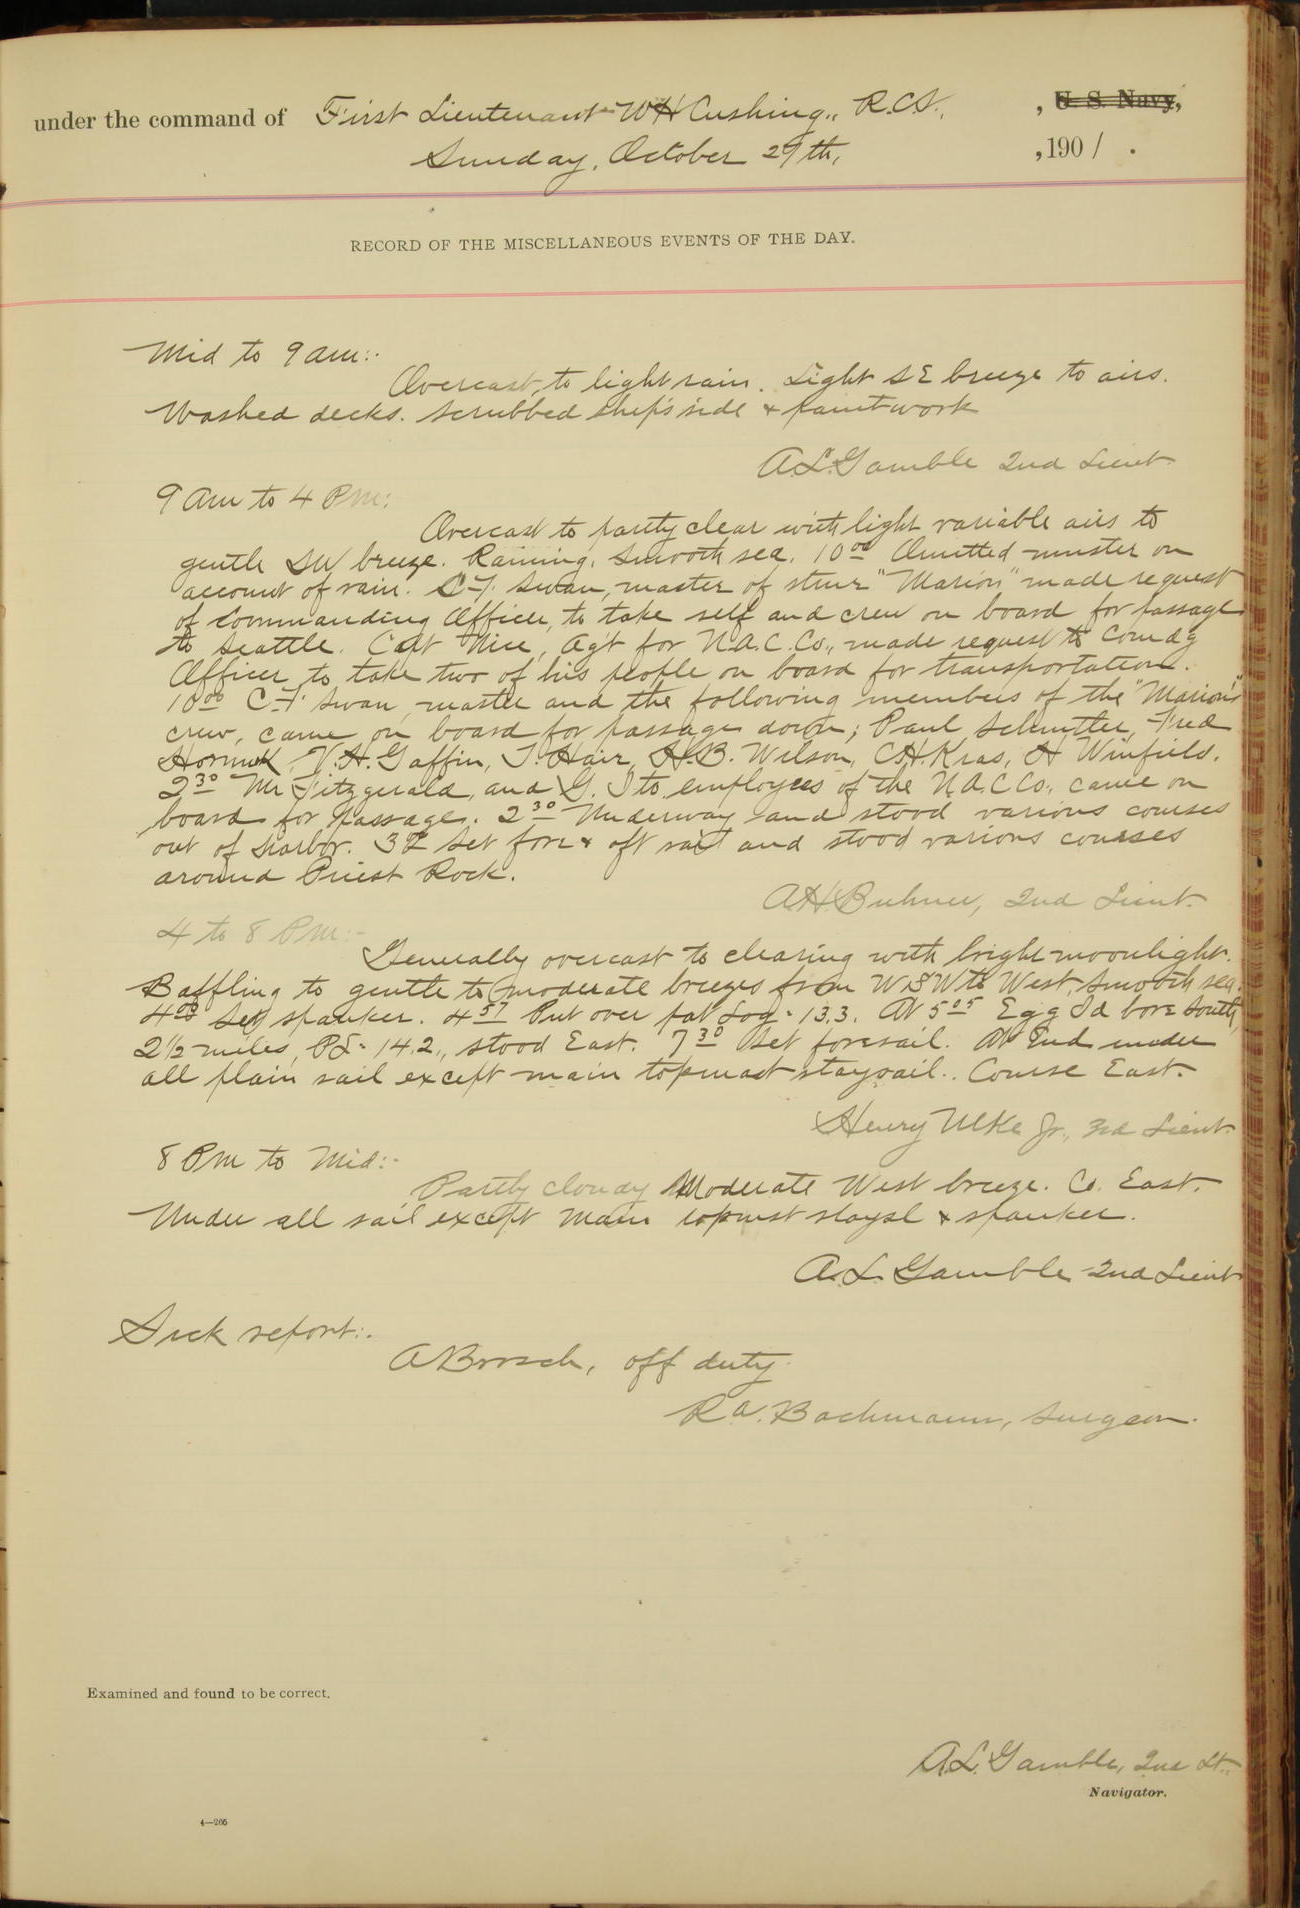 under the command of First Lieutenant W H Cushing., R.C.S., , U. S. Navy,
Sunday, October 27th, , 190 1 .
RECORD OF THE MISCELLANEOUS EVENTS OF THE DAY.
Mid to 9 am:-
Overcast, to light rain. Light SE breeze to airs.
Washed decks. Scrubbed ship's side & paintwork
A.L. Gamble 2nd Lieut.
9 am to 4 Pm:
Overcast to partly clear with light variable airs to
gentle SW breeze. Raining, smooth sea. 10 00 Omitted muster on
account of rain. C.F. Swan, master of stmr "Marion" made request
of Commanding Officer, to take self and crew on board for passage
to Seattle. Capt Nice, Ag't for N.A.C. Co., made request to Comdg
Officer to take two of his people on board for transportation.
10 00 C.F. Swan, master and the following members of the "Marion's"
crew, came on board for passage down; Paul Fred
V.H. Gaffin, T. Hair, H.B. Wilson, C.H. Kras, H Winfield.
2 30 Mr Fitzgerald, and G. Ito employees of the N.A.C Co., came on
board for passage. 2 30 Underway and stood various courses
out of harbor. Set fore & aft sail and stood various courses
around Priest Rock.
A.H. Buhner, 2nd Lieut.
4 to 8 Pm:-
Generally overcast to clearing with bright moonlight.
Baffling to gentle to moderate breezes from WSW to West, smooth sea.
Set spanker. 4 57 Put over pat Log - 13.3. At 5 05 Egg Id bore South,
2 1/2 miles, P.L- 14.2., stood East. 7 30 Set foresail. At End under
all plain sail except main topmast staysail.. Course East.
Henry Ulke Jr., 3rd Lieut.
8 Pm to Mid:-
Partly cloudy Moderate West breeze. Co. East.
Under all sail except Main topmst staysl & spanker.
A. L. Gamble 2nd Lieut
Sick report:.
A Brosch, off duty.
R.A. Bachmann, Surgeon.
Examined and found to be correct.
A.L. Gamble, 2nd Lt.
Navigator.
4—205